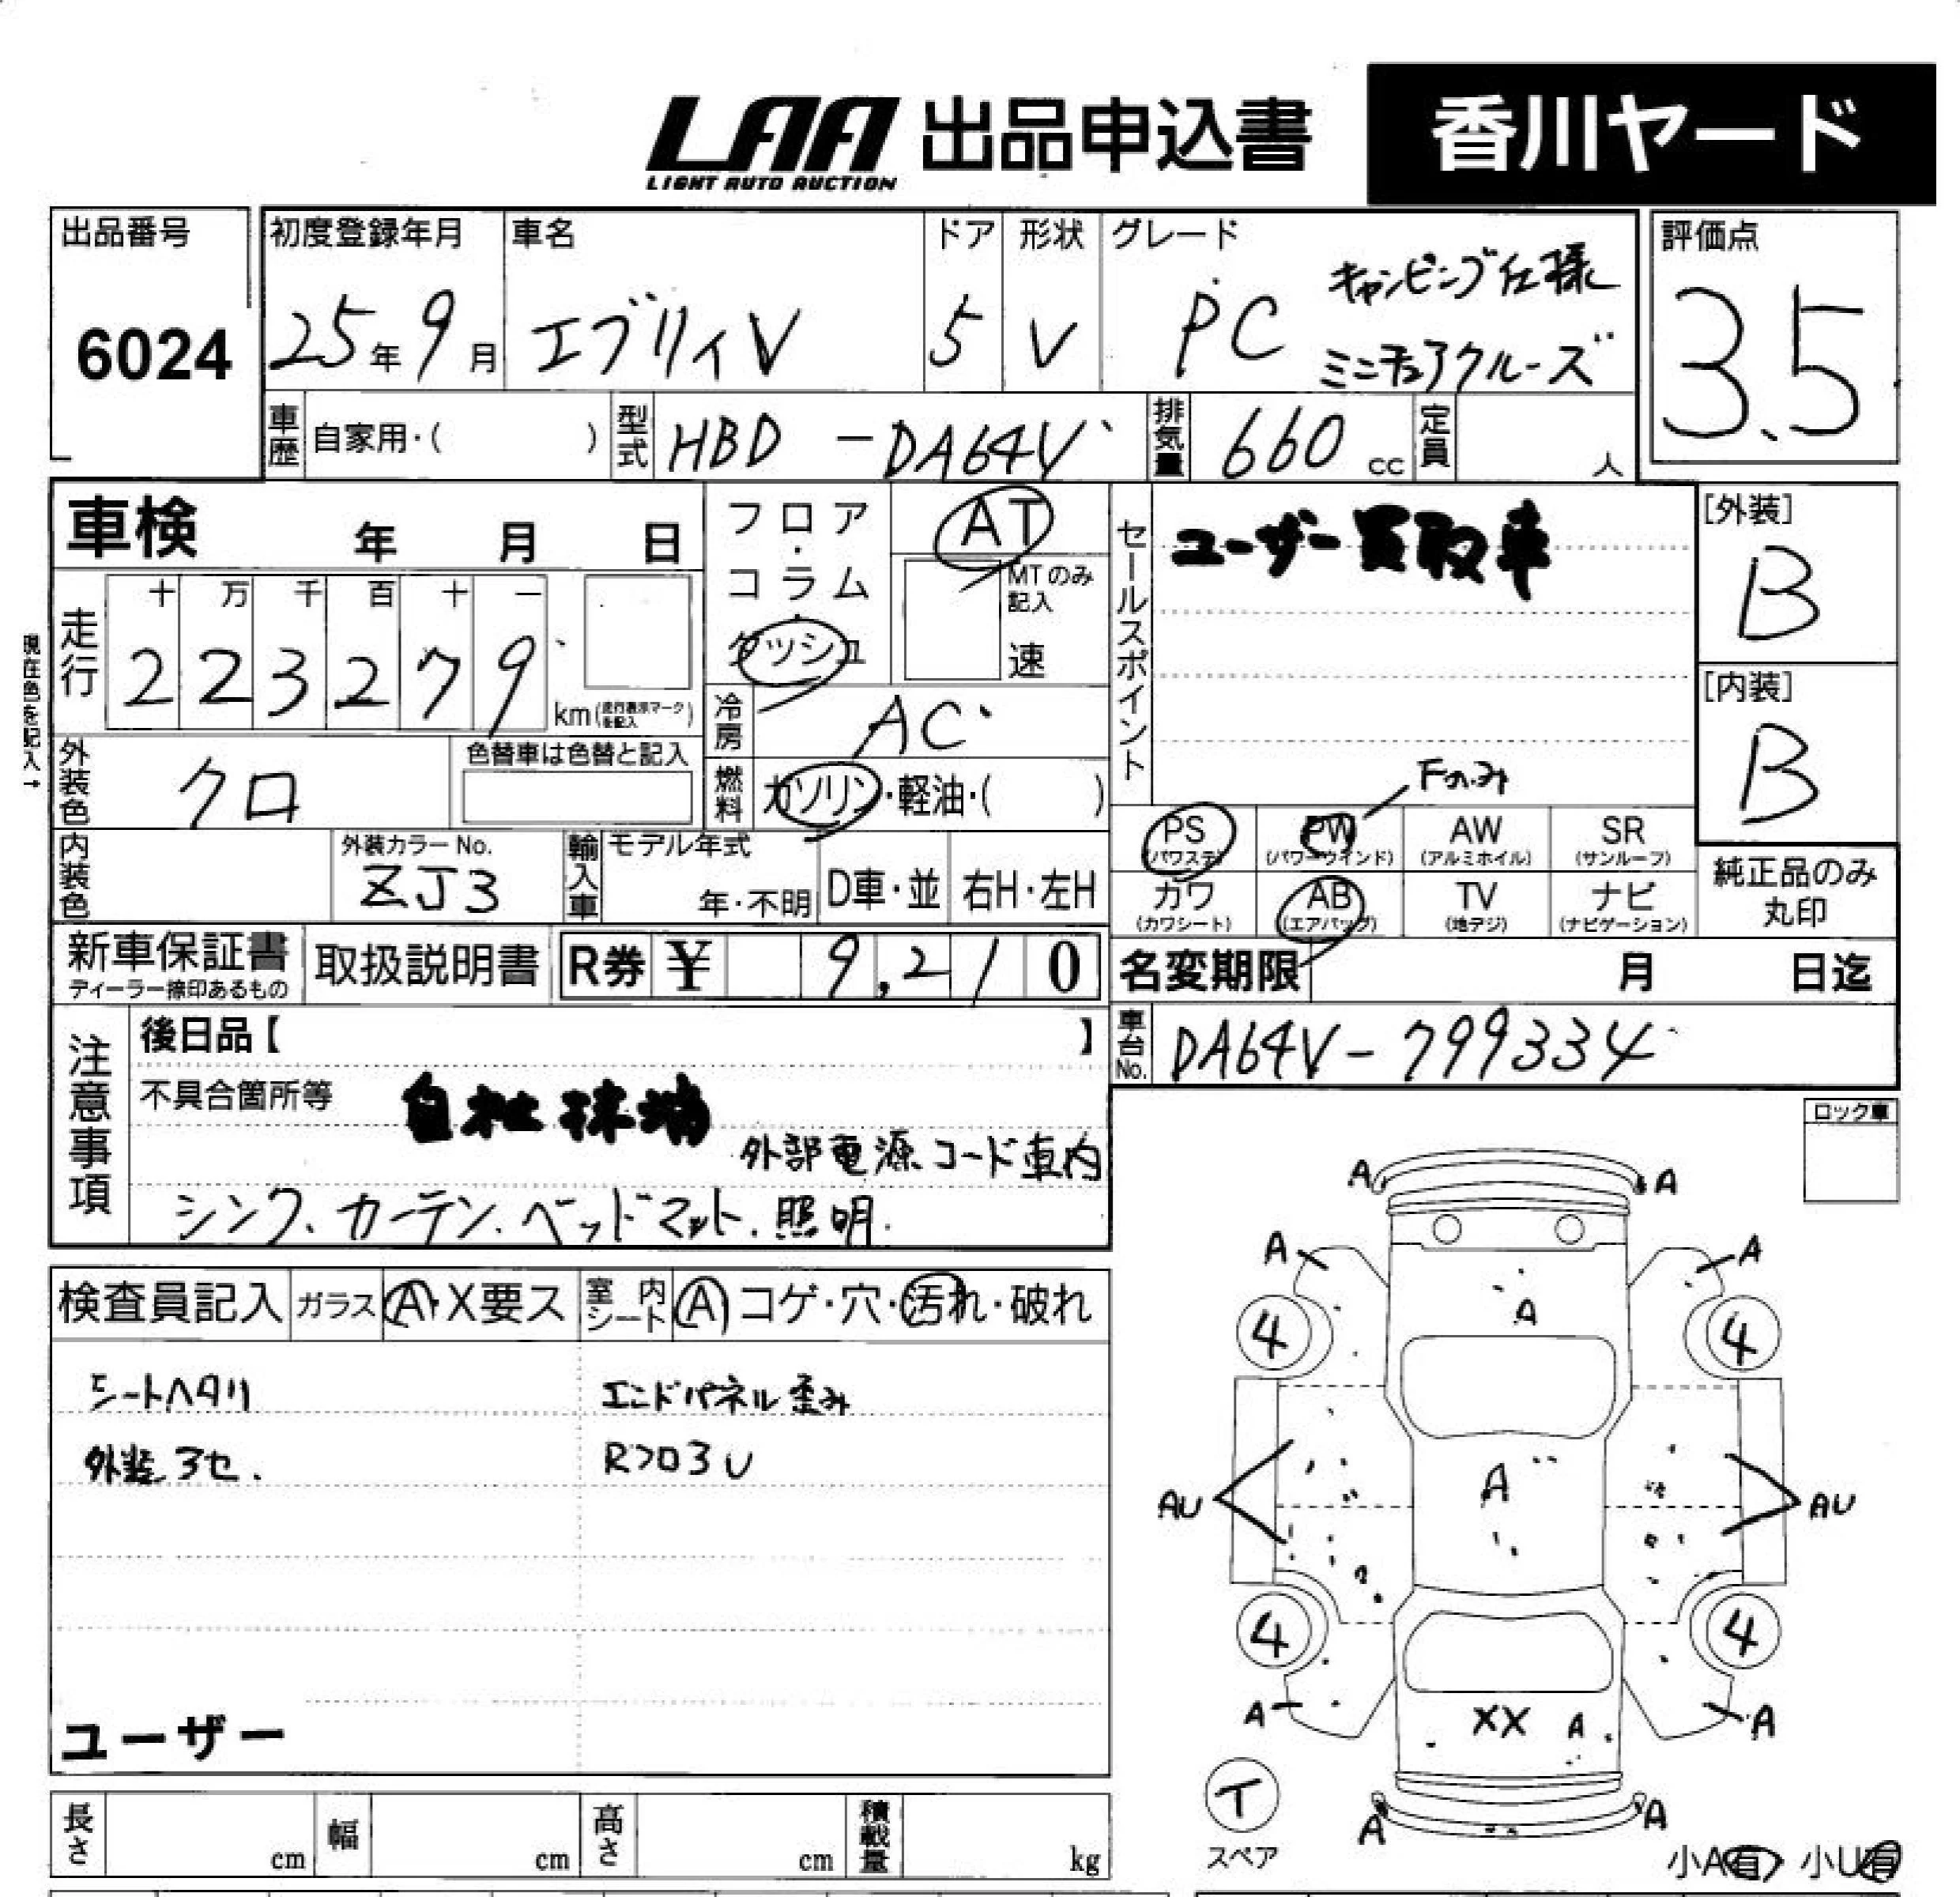 LAA 出品申込書 香川ヤード
LIGHT AUTO AUCTION
出品番号 初度登録年月 車名 ドア 形状 グレード 評価点
6024 25年9月 エブリィV 5 V PC キャンピング仕様 3.5
ミニチュアクルーズ
車歴 自家用・( ) 型式 HBD - DA64V 排気量 660 cc 定員 人
車検 年 月 日
フロア・コラム・ダッシュ AT
MTのみ記入
速
セールスポイント ユーザー買取車
[外装]
B
走行 十 万 千 百 十 一
2 2 3 2 7 9 km (走行表示マークを記入)
現在色を記入→
冷房 AC
[内装]
B
外装色 クロ 色替車は色替と記入
燃料 ガソリン・軽油・( )
Fのみ
PS (パワステ) PW (パワーウインド) AW (アルミホイル) SR (サンルーフ)
内装色 外装カラーNo. ZJ3
輸入車 モデル年式 年・不明 D車・並 右H・左H
カワ (カワシート) AB (エアバッグ) TV (地デジ) ナビ (ナビゲーション)
純正品のみ
丸印
新車保証書 ディーラー捺印あるもの 取扱説明書 R券 ¥ 9,210
名変期限 月 日迄
注意事項 後日品【 】
車台No. DA64V-799334
不具合箇所等 自社抹消
外部電源コード車内
シンク、カーテン、ベッドマット、照明
ロック車
検査員記入 ガラス A・X要ス 室内シート A コゲ・穴・汚れ・破れ
シートヘタリ エンドパネル歪み
外装3セ. Rフロ3U
ユーザー
A A
A A
A
4 4
AU A AU
4 4
A XX A A
T
スペア
A A
小A有 小U有
長さ cm 幅 cm 高さ cm 積載量 kg